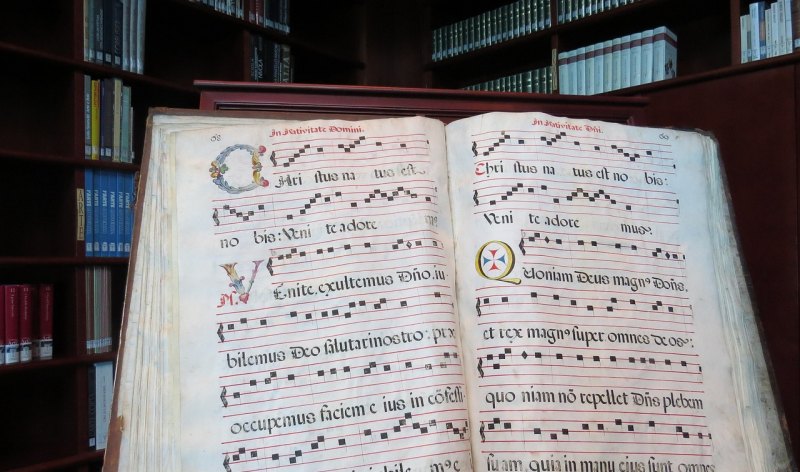 68
In Nativitate Domini.
Chri stus na tus est
no bis: Veni te adore mꝰ.
Ps. Venite, exultemus Dño, iu
bilemus Deo salutari nostro: præ
occupemus faciem e ius in cõfessi
In Nativitate Dñi.
Chri stus na tus est no bis:
Veni te adore musꝰ.
Qƫoniam Deus magnꝰ Doñs,
et rex magnꝰ super omnes deos:
quo niam nõ repellet Dñs plebem
suam, quia in manu ejus sunt omne